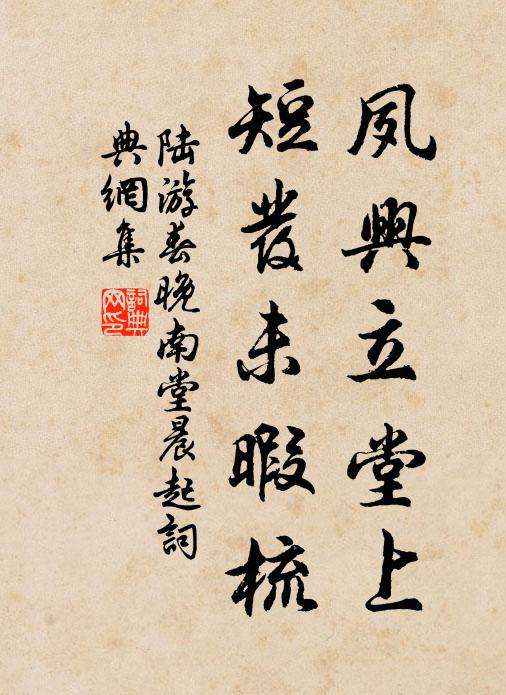 夙興立堂上
短發未暇梳
陸游春晚南堂晨起詞
典網集
詞典
网印